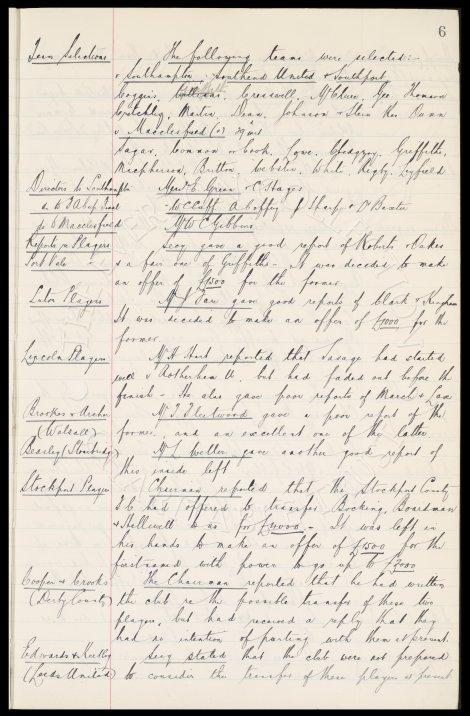 6
Team Selections The following teams were selected:-
v Southampton, Southend United & Southport
Coggins, Cresswell, McClure, Gee Thomson
Critchley, Martin, Dean, Johnson & Stein Res Dunn
v Macclesfield (a)
Sagar, Common or Cook, Lowe, Griffiths,
Macpherson, Britton, Webster, White, Rigby,
Directors to Southampton Messrs E. Green & C Sharp
do to FA Cup Final W C Cuff A Coffey J Sharp & D Baxter
do to Macclesfield Mr W C Gibbins
Reports re Players Secy gave a good report of Roberts & Oakes
Port Vale & a fair one of Griffiths - it was decided to make
an offer of £1500 for the former.
Luton Players Mr gave good reports of Clark & Kingham
It was decided to make an offer of £1000 for the
former.
Lincoln Players Mr H Hart reported that Savage had started
well v Rotherham U. but had faded out before the
finish - He also gave poor reports of March & Lax
Brookes & Archer Mr T Fleetwood gave a poor report of the
(Walsall) former, and an excellent one of the latter
Bearley (Stourbridge) Mr L Weller gave another good report of
this inside left
Stockport Player Chairman reported that the Stockport County
F.C. had offered to transfer Bocking, Boardman
& Stillwell to us for £4000 - It was left in
his hands to make an offer of £1500 for the
firstnamed with power to go up to £2000
Cooper & Crooks The Chairman reported that he had written
(Derby County) the club re the possible transfer of these two
players, but had received a reply that they
had no intention of parting with them at present.
Edwards & Keetley Secy stated that the club were not prepared
(Leeds United) to consider the transfer of these players at present